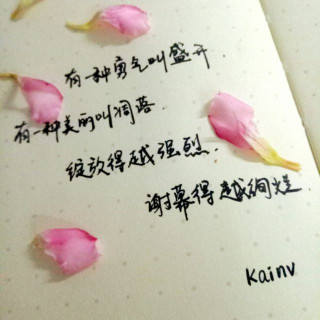 有一种勇气叫盛开.
有一种美的叫凋落.
绽放得越强烈.
谢幕得越绚烂.
Kainv